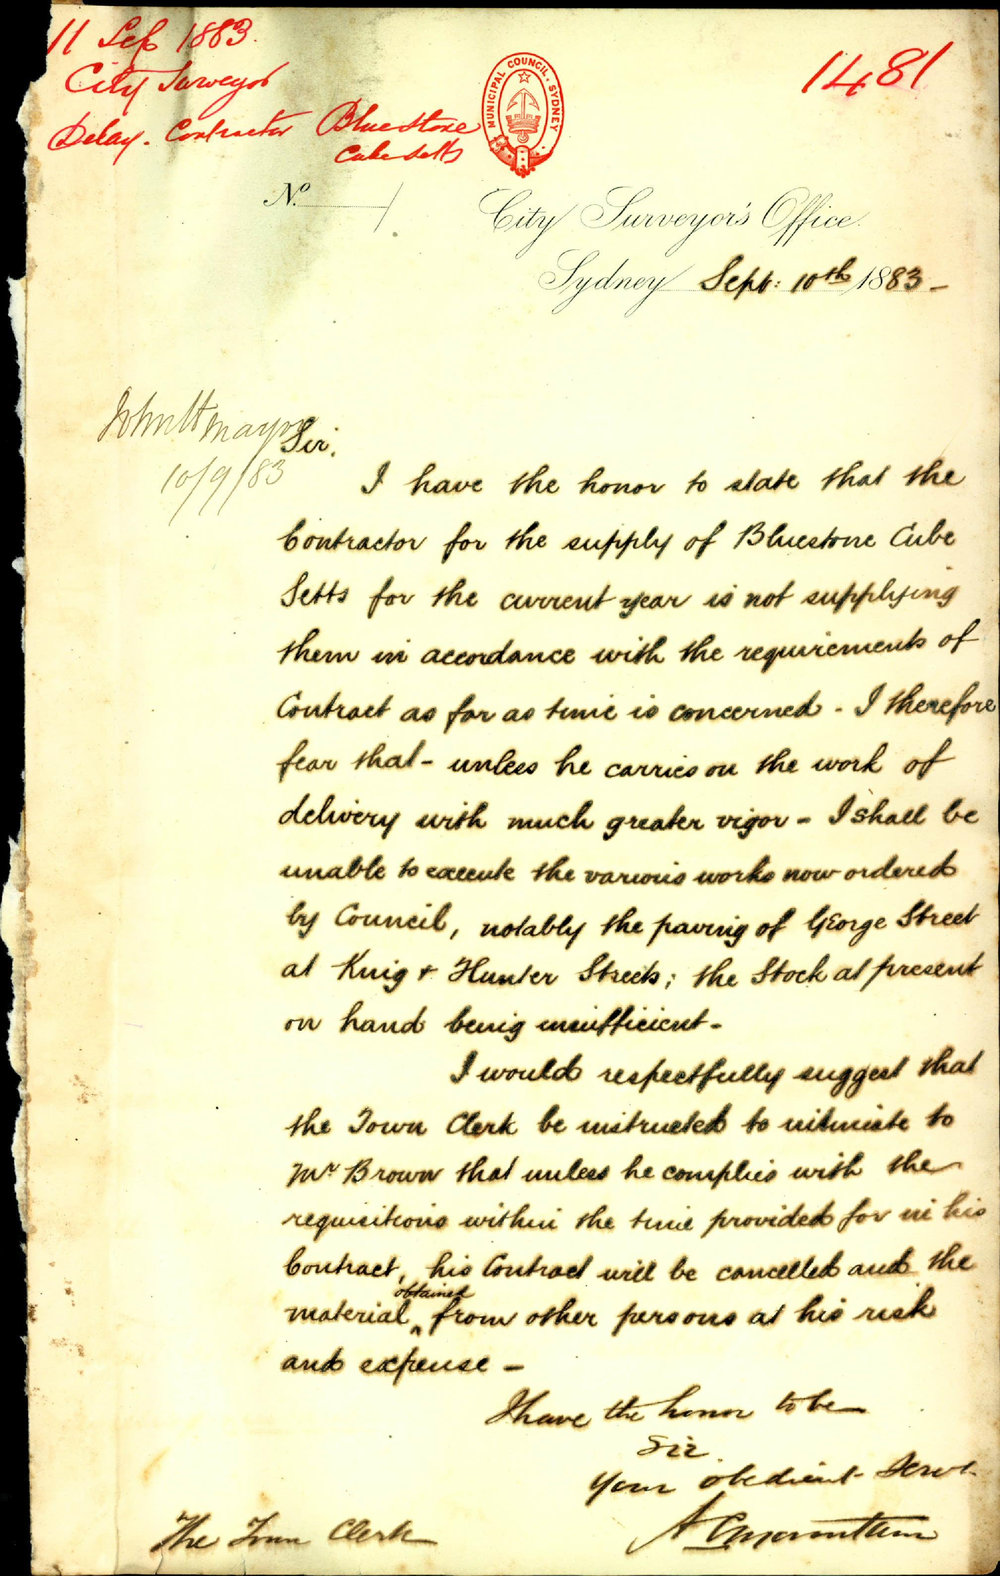 11 Sep 1883.
City Surveyor
Delay. Contractor Bluestone
Cube Setts
1481
MUNICIPAL COUNCIL · SYDNEY
No. /
City Surveyor's Office.
Sydney Sept: 10th 1883 -
10/9/83
Sir,
I have the honor to state that the
Contractor for the supply of Bluestone Cube
Setts for the current year is not supplying
them in accordance with the requirements of
Contract as far as time is concerned - I therefore
fear that - unless he carries on the work of
delivery with much greater vigor - I shall be
unable to execute the various works now ordered
by Council, notably the paving of George Street
at King & Hunter Streets; the Stock at present
on hand being insufficient -
I would respectfully suggest that
the Town Clerk be instructed to intimate to
Mr Brown that unless he complies with the
requisitions within the time provided for in his
Contract, his Contract will be cancelled and the
material obtained from other persons at his risk
and expense -
I have the honor to be
Sir
Your obedient Servt
The Town Clerk